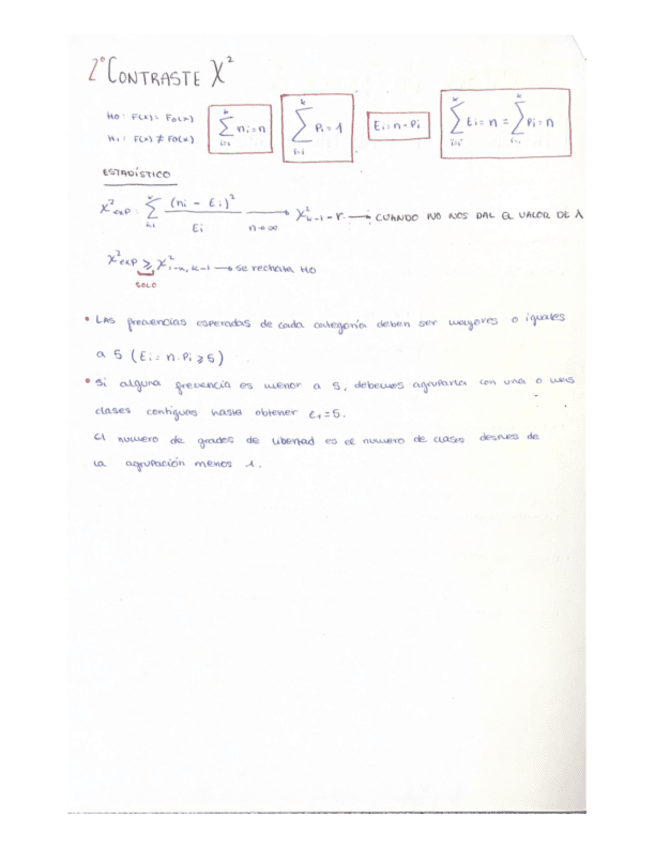 2º CONTRASTE χ²
H0: F(x) = F0(x)
H1: F(x) ≠ F0(x)
∑_{i=1}^{k} ni = n
∑_{i=1}^{k} Pi = 1
Ei = n · Pi
∑_{i=1}^{k} Ei = n = ∑_{i=1}^{k} Pi = n
ESTADÍSTICO
χ²exp : ∑_{i=1}^{k} (ni - Ei)² / Ei → n→∞ χ²k-1-r. → CUANDO NO NOS DAL EL VALOR DE λ
χ²exp ≥ χ²1-α, k-1 → se rechaza H0
SOLO
• LAS frecuencias esperadas de cada categoría deben ser mayores o iguales
a 5 (Ei = n · Pi ≥ 5)
• Si alguna frecuencia es menor a 5, debemos agruparla con una o unas
clases contiguas hasta obtener ei = 5.
El numero de grados de libertad es el numero de clases despues de
la agrupación menos 1.